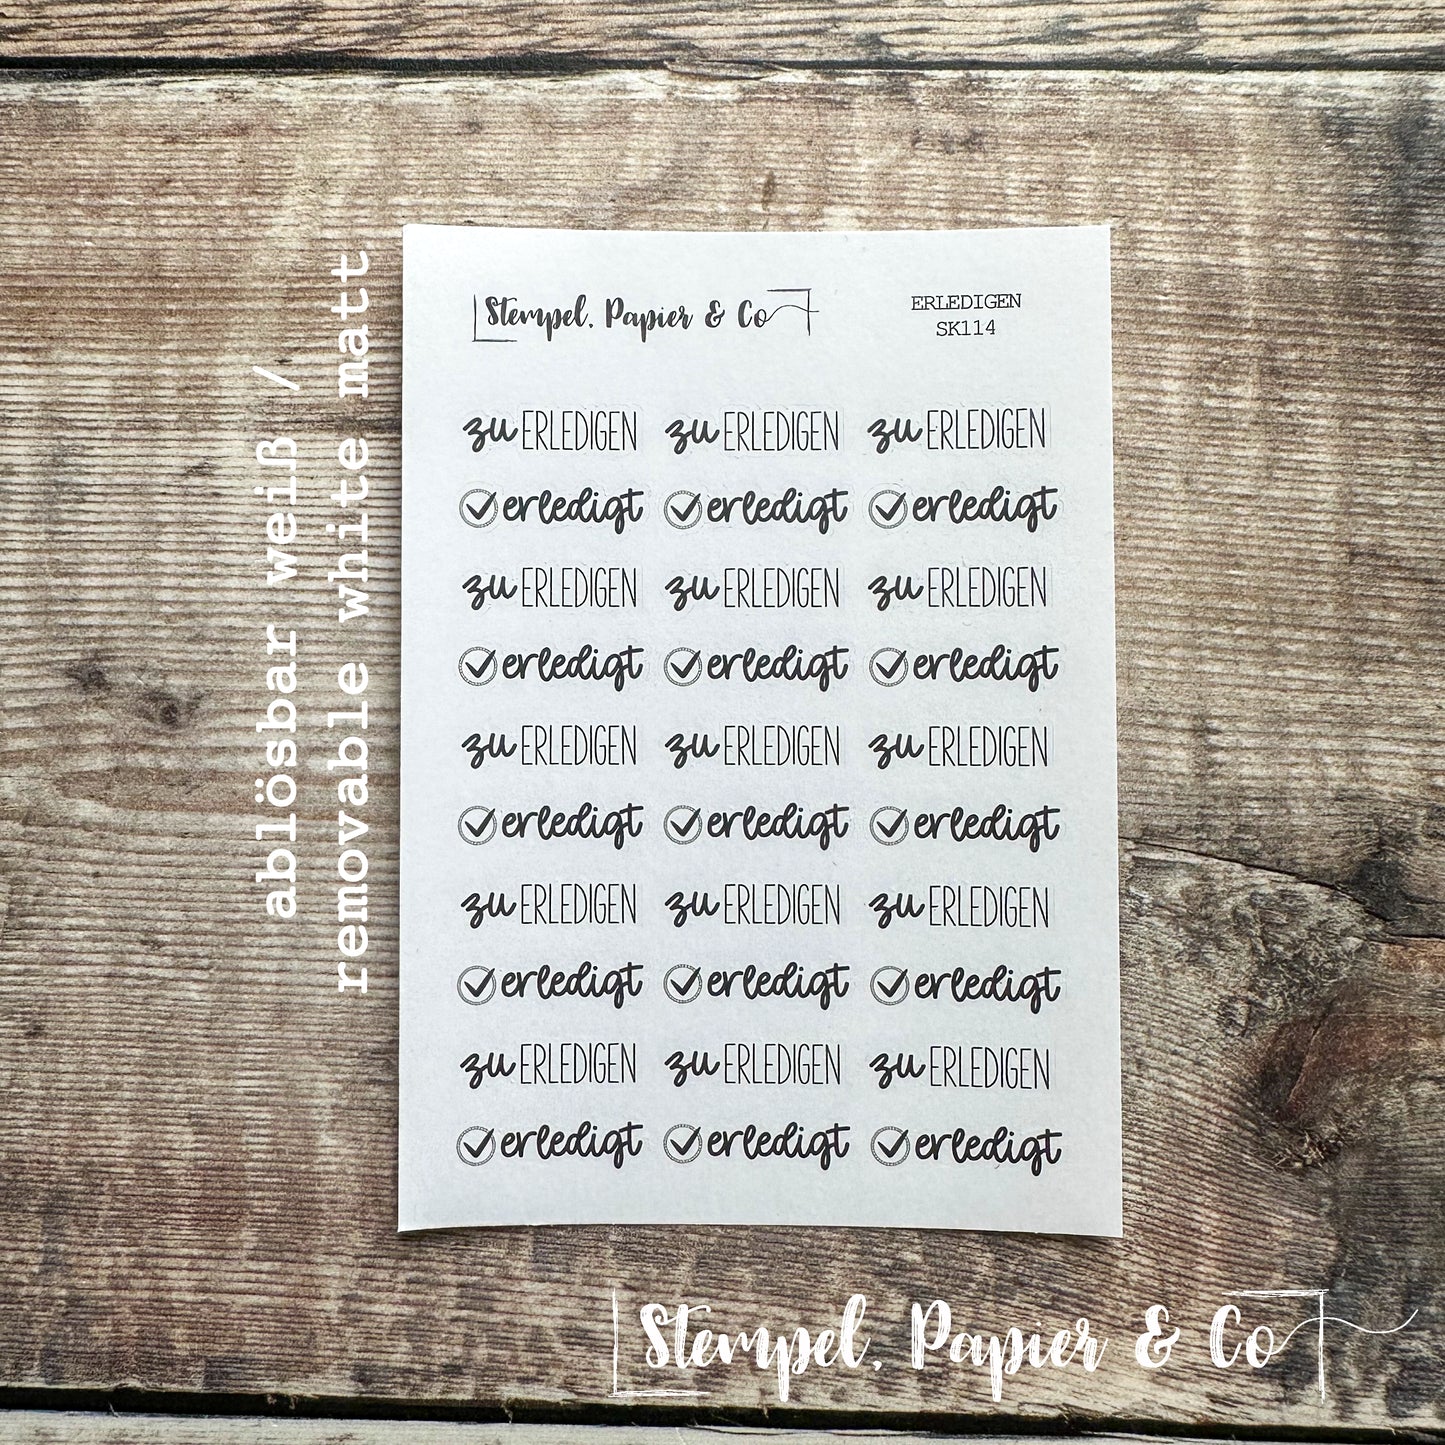 Stempel, Papier & Co
ERLEDIGEN
SK114
zu ERLEDIGEN zu ERLEDIGEN zu ERLEDIGEN
erledigt erledigt erledigt
zu ERLEDIGEN zu ERLEDIGEN zu ERLEDIGEN
erledigt erledigt erledigt
zu ERLEDIGEN zu ERLEDIGEN zu ERLEDIGEN
erledigt erledigt erledigt
zu ERLEDIGEN zu ERLEDIGEN zu ERLEDIGEN
erledigt erledigt erledigt
zu ERLEDIGEN zu ERLEDIGEN zu ERLEDIGEN
erledigt erledigt erledigt
ablösbar weiß /
removable white matt
Stempel, Papier & Co